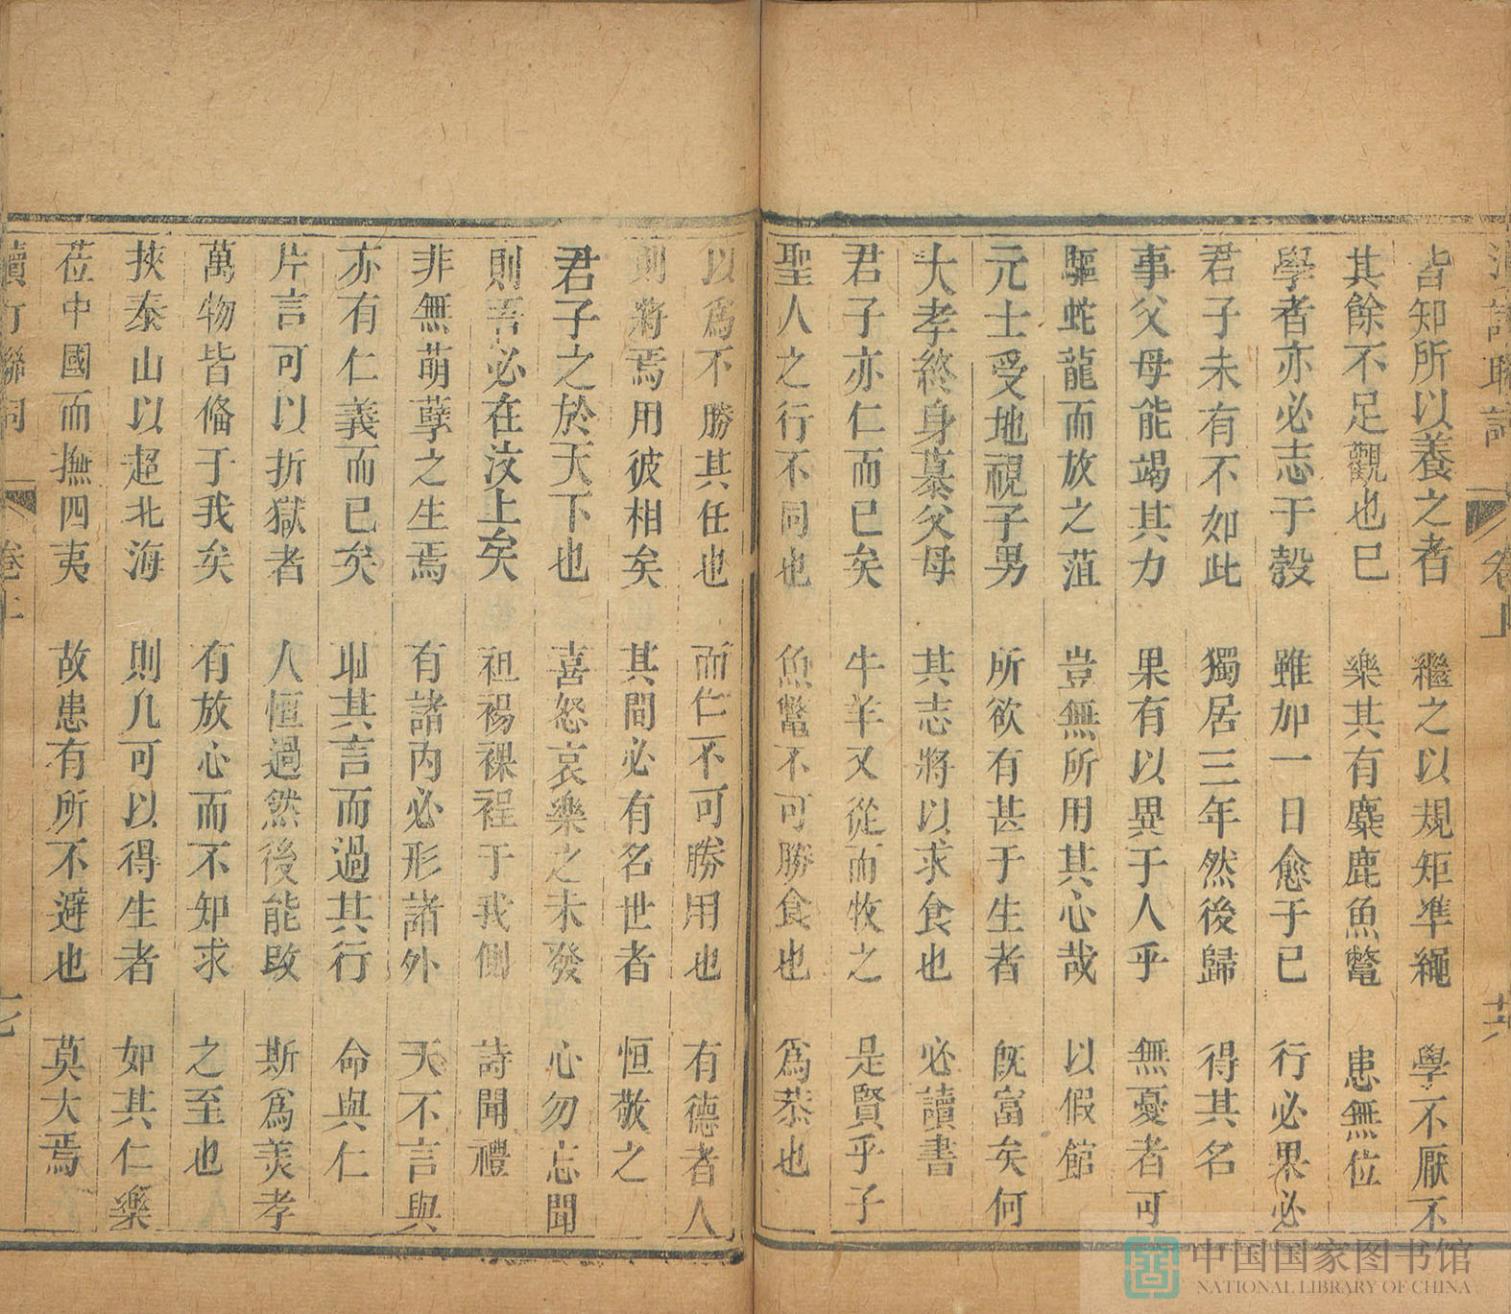 皆知所以養之者 繼之以規矩準繩 學不厭不
其餘不足觀也已 樂其有麋鹿魚鼈 患無位
學者亦必志于彀 雖加一日愈于已 行必果必
君子未有不如此 獨居三年然後歸 得其名
事父母能竭其力 果有以異于人乎 無憂者可
驅蛇龍而放之菹 豈無所用其心哉 以假館
元士受地視子男 所欲有甚于生者 旣富矣何
大孝終身慕父母 其志將以求食也 必讀書
君子亦仁而已矣 牛羊又從而牧之 是賢乎子
聖人之行不同也 魚鼈不可勝食也 爲恭也
以爲不勝其任也 而仁不可勝用也 有德者人
則將焉用彼相矣 其間必有名世者 恒敬之
君子之於天下也 喜怒哀樂之未發 心勿忘聞
則吾必在汶上矣 袒裼裸裎于我側 詩聞禮
非無萌孽之生焉 有諸內必形諸外 天不言與
亦有仁義而已矣 耻其言而過其行 命與仁
片言可以折獄者 人恒過然後能改 斯爲美孝
萬物皆俻于我矣 有放心而不知求 之至也
挾泰山以超北海 則凡可以得生者 如其仁樂
莅中國而撫四夷 故患有所不避也 莫大焉
續訂聯詞 卷上
中国国家图书馆
NATIONAL LIBRARY OF CHINA